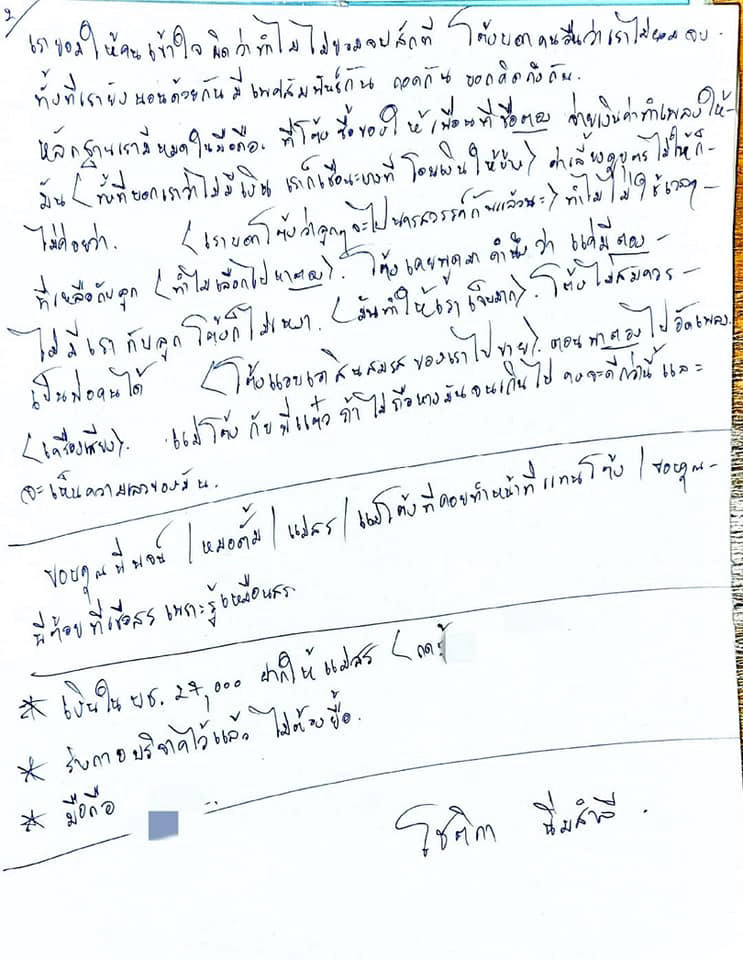 2
เรายอมให้คนเข้าใจผิดว่าทำไมไม่ยอมจบสักที โต้งบอกคนอื่นว่าเราไม่ยอมจบ.
ทั้งที่เรายังนอนด้วยกัน มีเพศสัมพันธ์กัน กอดกัน บอกคิดถึงกัน.
หลักฐานเรามีหมดในมือถือ. ที่โต้งซื้อของให้เพื่อนที่ชื่อตอง จ่ายเงินค่าทำเพลงให้-
มัน <ทั้งที่บอกเราว่าไม่มีเงิน เราก็เชื่อนะบางที่โอนเงินให้บ้าง> ค่าเลี้ยงดูบุตรไม่ให้ก็-
ไม่ค่อยว่า. <เราบอกโต้งว่าลูกๆจะไปนครสวรรค์กันแล้วนะ> ทำไมไม่ใช้เวลา-
ที่เหลือกับลูก <ทำไมเลือกไปหาตอง>. โต้งเคยพูดมาคำนึงว่า แค่มีตอง-
ไม่มีเรากับลูก โต้งก็ไม่เหงา. <มันทำให้เราเจ็บมาก>. โต้งไม่สมควร-
เป็นพ่อคนได้ <โต้งแอบเอาสินสมรสของเราไปขาย>. ตอนพาตองไปอัดเพลง.
<เครื่องเสียง>. แม่โต้งกับพี่แต๋ว ถ้าไม่ถือหางมันจนเกินไป คงจะดีกว่านี้ และ
จะเห็นความเลวของมัน.
ขอบคุณพี่พจน์ / หมอตั้ม / แม่สร / แม่โต้งที่คอยทำหน้าที่แทนโต้ง / ขอบคุณ-
พี่ต้อยที่เชื่อสร เพราะรู้เหมือนสร
* เงินใน บช. 27,000 ฝากให้แม่สร <กดรู้
* ร่างกายบริจาคไว้แล้ว ไม่ต้องยื้อ.
* มือถือ
โชติกา นิ่มสำลี.